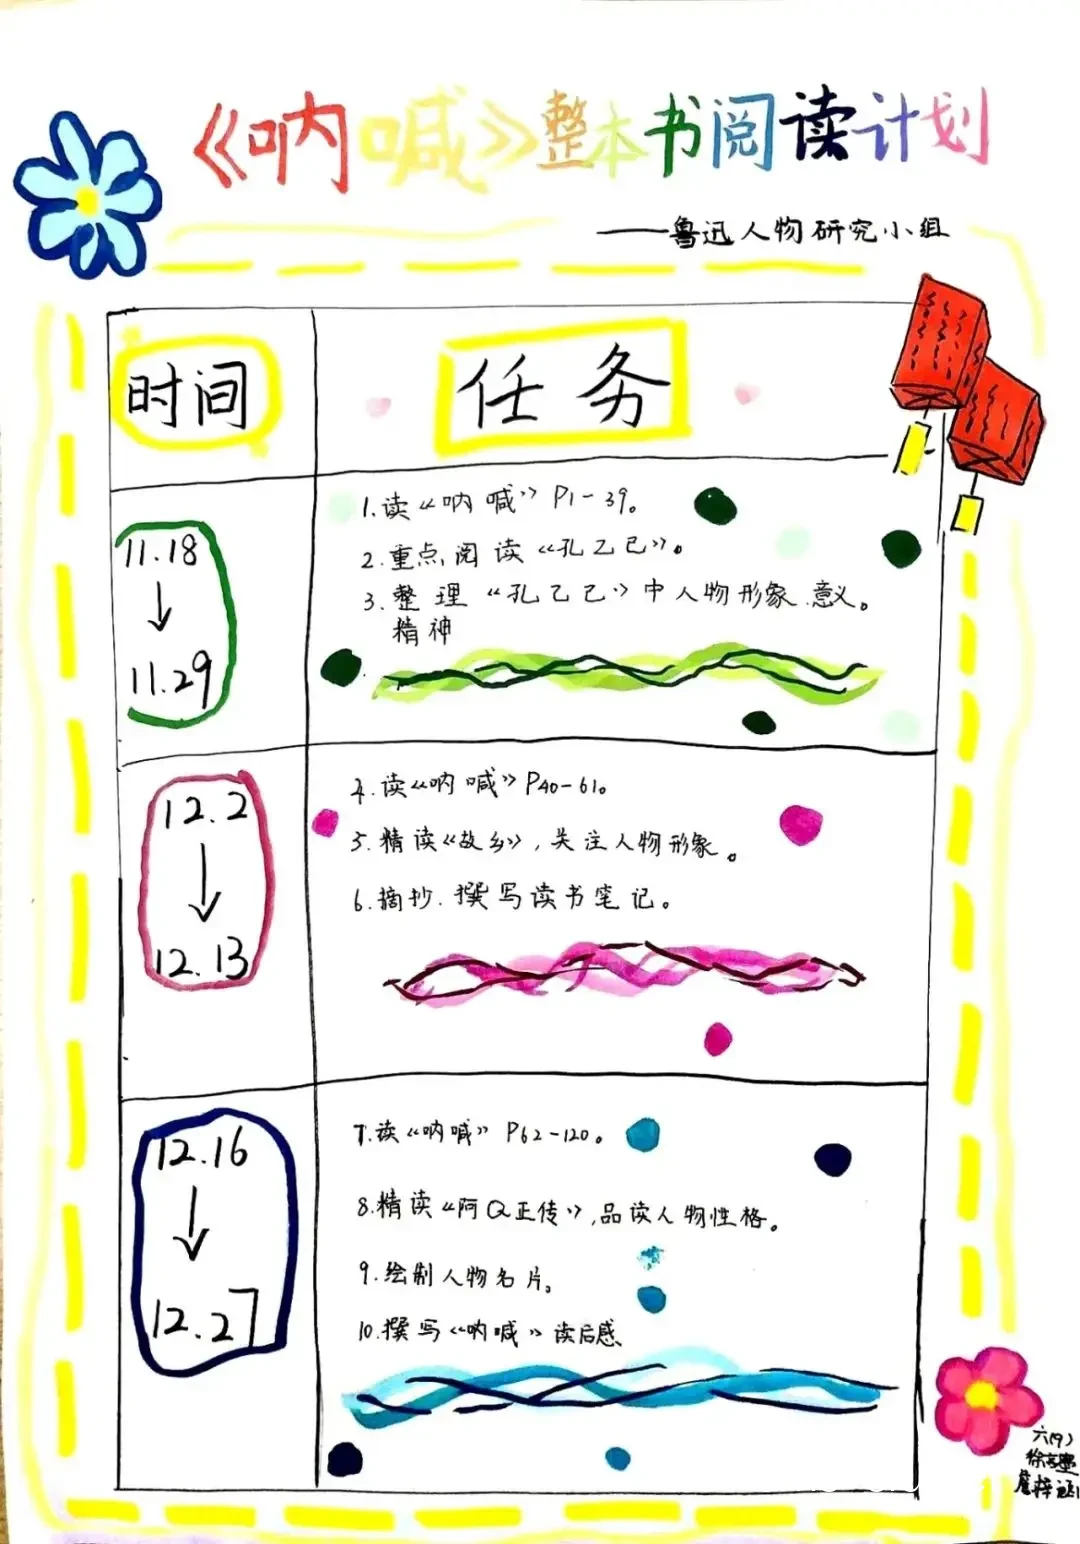 《呐喊》整本书阅读计划
——鲁迅人物研究小组
时间
任务
11.18
↓
11.29
1.读《呐喊》P1-39。
2.重点阅读《孔乙己》。
3.整理《孔乙己》中人物形象.意义。
精神
12.2
↓
12.13
4.读《呐喊》P40-61。
5.精读《故乡》,关注人物形象。
6.摘抄.撰写读书笔记。
12.16
↓
12.27
7.读《呐喊》P62-120。
8.精读《阿Q正传》,品读人物性格。
9.绘制人物名片。
10.撰写《呐喊》读后感